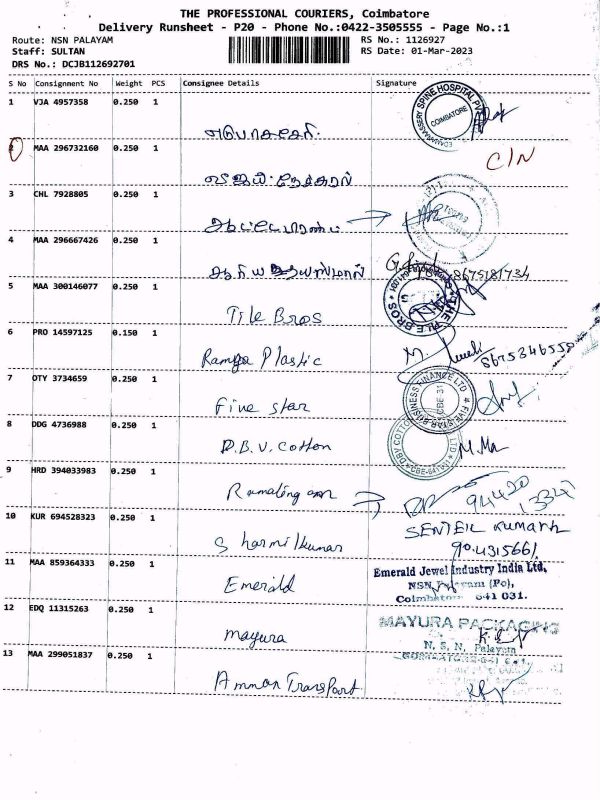 THE PROFESSIONAL COURIERS, Coimbatore
Delivery Runsheet - P20 - Phone No.:0422-3505555 - Page No.:1
Route: NSN PALAYAM RS No.: 1126927
Staff: SULTAN RS Date: 01-Mar-2023
DRS No.: DCJB112692701
S No Consignment No Weight PCS Consignee Details Signature
1 VJA 4957358 0.250 1
EDAYARPALAYAM SPINE HOSPITAL COIMBATORE
2 MAA 296732160 0.250 1
C/N
3 CHL 7928805 0.250 1
4 MAA 296667426 0.250 1
8675181734
5 MAA 300146077 0.250 1
Tile Bros
THE TILE BROS
6 PRO 14597125 0.150 1
Ramya Plastic
8675346559
7 OTY 3734659 0.250 1
Five star
FIVE STAR BUSINESS FINANCE LTD CBE-31
8 DDG 4736988 0.250 1
D.B.V. Cotton
DBV COTTON LTD CBE-641
9 HRD 394033983 0.250 1
Ramalingam
94420
10 KUR 694528323 0.250 1
SENTEIL Kumarr
Sharmilkumar
90.4315661
11 MAA 859364333 0.250 1
Emerald Jewel Industry India Ltd,
Emerald
NSN Palayam (Po),
Coimbatore 641 031.
12 EDQ 11315263 0.250 1
MAYURA PACKAGING
mayura
N. S. N. Palayam
13 MAA 299051837 0.250 1
Amman Transport